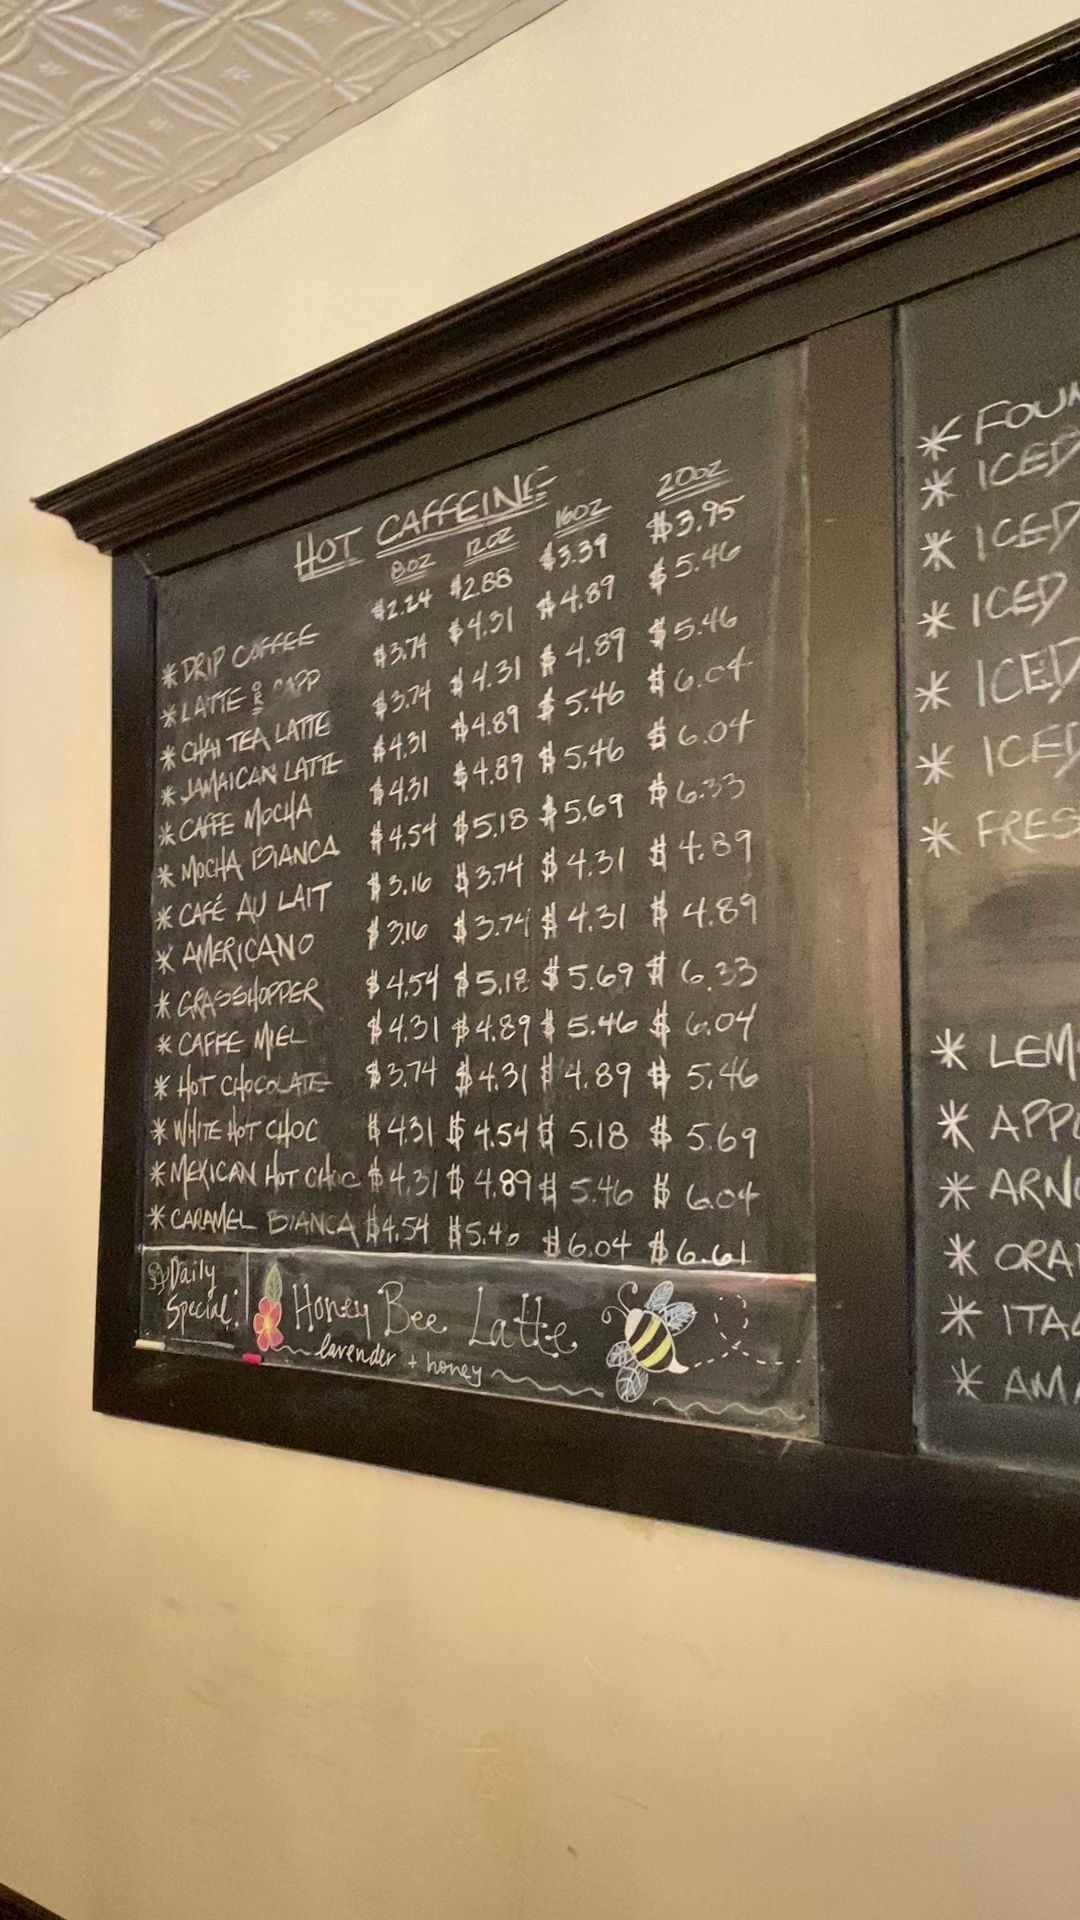 HOT CAFFEINE
8OZ 12OZ 16OZ 20OZ
* DRIP COFFEE $2.24 $2.88 $3.39 $3.95
* LATTE OR CAPP $3.74 $4.31 $4.89 $5.46
* CHAI TEA LATTE $3.74 $4.31 $4.89 $5.46
* JAMAICAN LATTE $4.31 $4.89 $5.46 $6.04
* CAFFE MOCHA $4.31 $4.89 $5.46 $6.04
* MOCHA BIANCA $4.54 $5.18 $5.69 $6.33
* CAFÉ AU LAIT $3.16 $3.74 $4.31 $4.89
* AMERICANO $3.16 $3.74 $4.31 $4.89
* GRASSHOPPER $4.54 $5.18 $5.69 $6.33
* CAFFE MIEL $4.31 $4.89 $5.46 $6.04
* HOT CHOCOLATE $3.74 $4.31 $4.89 $5.46
* WHITE HOT CHOC $4.31 $4.54 $5.18 $5.69
* MEXICAN HOT CHOC $4.31 $4.89 $5.46 $6.04
* CARAMEL BIANCA $4.54 $5.46 $6.04 $6.61
Daily Special:
Honey Bee Latte
lavender + honey
* FOUN
* ICED
* ICED
* ICED
* ICED
* ICED
* FRES
* LEM
* APPL
* ARN
* ORA
* ITA
* AMA